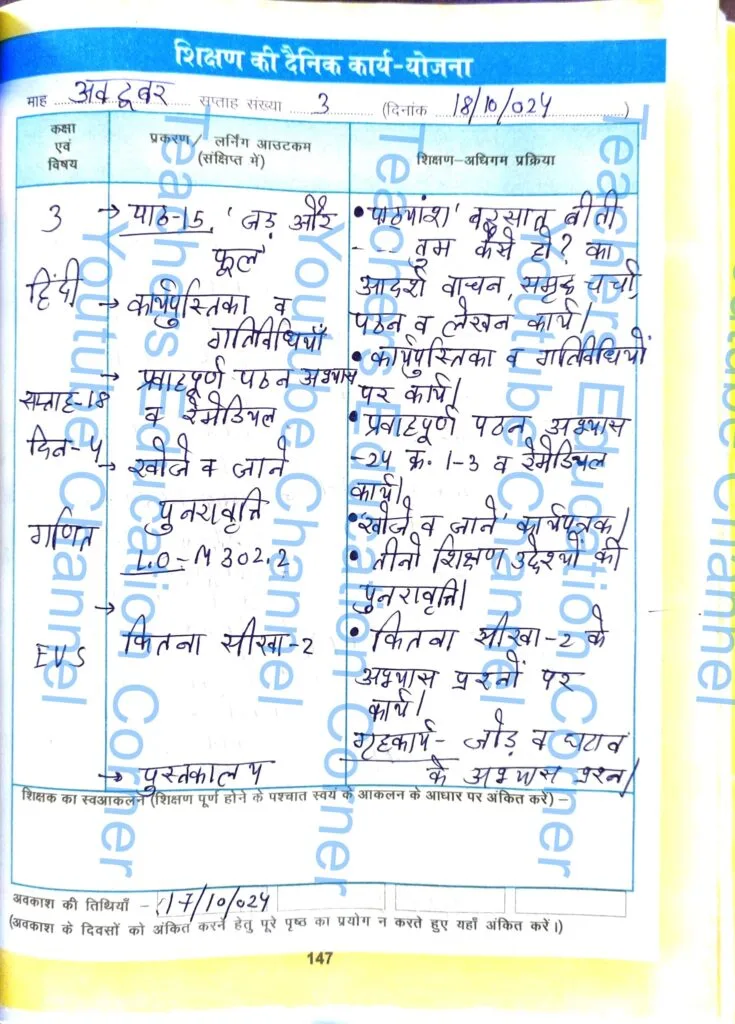 शिक्षण की दैनिक कार्य-योजना
माह अक्टूबर सप्ताह संख्या 3 (दिनांक 18/10/024)
कक्षा एवं विषय
प्रकरण/ लर्निंग आउटकम (संक्षिप्त में)
शिक्षण-अधिगम प्रक्रिया
3
हिंदी
सप्ताह-18
दिन-4
गणित
EVS
→ पाठ-15. 'जड़ और
फूल'
→ कार्यपुस्तिका व
गतिविधियाँ
→ प्रवाहपूर्ण पठन अभ्यास
व रेमेडियल
→ खोजे व जाने
पुनरावृत्ति
L.O-M302.2
→
कितना सीखा-2
→ पुस्तकालय
• पाठ्यांश' बरसात बीती
--- तुम कैसे हो? का
आदर्श वाचन, समूह चर्चा,
पठन व लेखन कार्य।
• कार्यपुस्तिका व गतिविधियों
पर कार्य।
• प्रवाहपूर्ण पठन अभ्यास
-24 क्र. 1-3 व रेमेडियल
कार्य।
• 'खोजे व जाने' कार्यपत्रक।
• तीनो शिक्षण उद्देश्यों की
पुनरावृत्ति।
• कितना सीखा-2 के
अभ्यास प्रश्नों पर
कार्य।
गृहकार्य- जोड़ व घटाव
के अभ्यास प्रश्न।
शिक्षक का स्वआकलन (शिक्षण पूर्ण होने के पश्चात स्वयं के आकलन के आधार पर अंकित करें) -
अवकाश की तिथियाँ - 17/10/024
(अवकाश के दिवसों को अंकित करने हेतु पूरे पृष्ठ का प्रयोग न करते हुए यहाँ अंकित करें।)
147
Teachers Education Corner
Youtube Channel
Teachers Education Corner
Youtube Channel
Teachers Education Corner
Youtube Channel